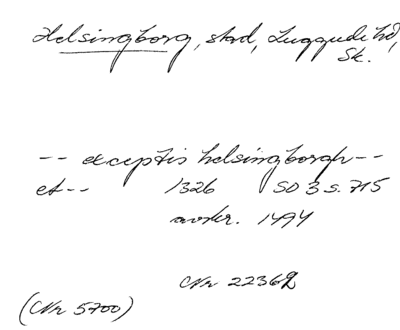 Helsingborg, stad, Luggude hd,
Sk.
-- exceptis helsingborgh --
et -- 1326 SD 3 s. 715
avskr. 1494
Nr 22362
(Nr 5700)